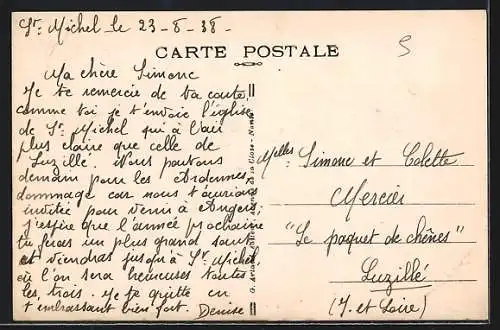 St Michel le 23-8-38-
CARTE POSTALE
5
Ma chère Simone
Je te remercie de ta carte,
comme toi je t'envoie l'église
de St Michel qui à l'air
plus claire que celle de
Luzillé. Nous partons
demain pour les Ardennes
dommage car nous t'aurions
invitée pour venir à Angers,
j'espère que l'année prochaine
tu feras un plus grand saut
et viendras jusqu'à St Michel,
où l'on sera heureuses toutes
les, trois. Je te quitte en
t'embrassant bien fort. Denise
Melles Simone et Colette
Mercier
"Le paquet de chênes"
Luzillé
(I. et Loire)